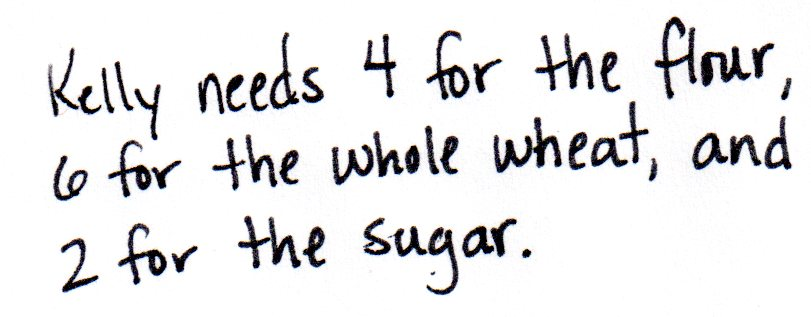 Kelly needs 4 for the flour,
6 for the whole wheat, and
2 for the sugar.